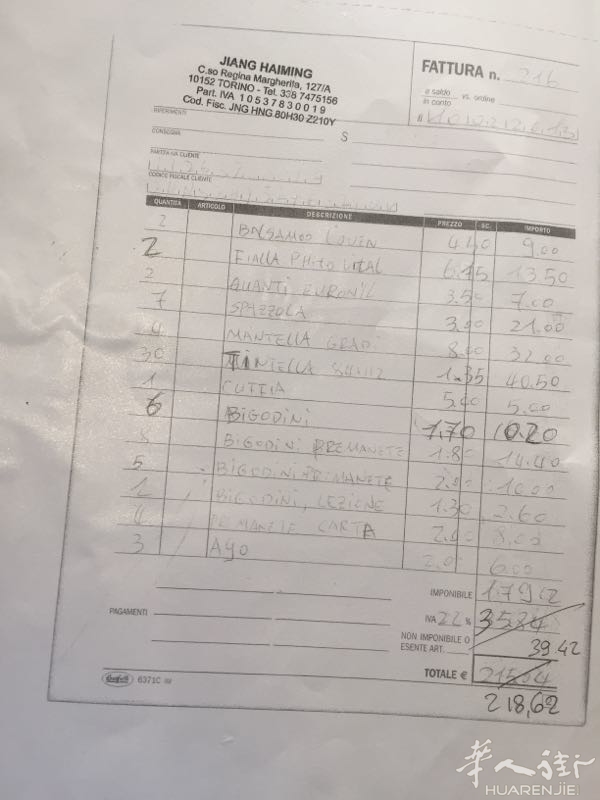 JIANG HAIMING
C.so Regina Margherita, 127/A
10152 TORINO - Tel. 338 7475156
Part. IVA 10537830019
Cod. Fisc. JNG HNG 80H30 Z210Y
FATTURA n. 216
a saldo
in conto
vs. ordine
RIFERIMENTI
CONSEGNA
S
PARTITA IVA CLIENTE
CODICE FISCALE CLIENTE
QUANTITÀ ARTICOLO DESCRIZIONE PREZZO SC. IMPORTO
2 BALSAMO 9.00
2 FIALLA PHITO VITAL 6.75 13.50
2 GUANTI 3.50 7.00
7 SPAZZOLA 3.00 21.00
4 MANTELLA 8.00 32.00
30 1.35 40.50
1 CUFFIA 5.00 5.00
6 BIGODINI 1.70 10.20
8 BIGODINI PREMANETE 1.80 14.40
5 BIGODINI PRMANETE 2.00 10.00
2 BIGODINI, LEZIONE 1.30 2.60
4 CARTA 2.00 8.00
3 AGO 2.00 6.00
IMPONIBILE 179.2
PAGAMENTI
IVA 22 % 35.84
NON IMPONIBILE O
ESENTE ART. 39.42
TOTALE € 215.04
218,62
6371C
华人街
HUARENJIE